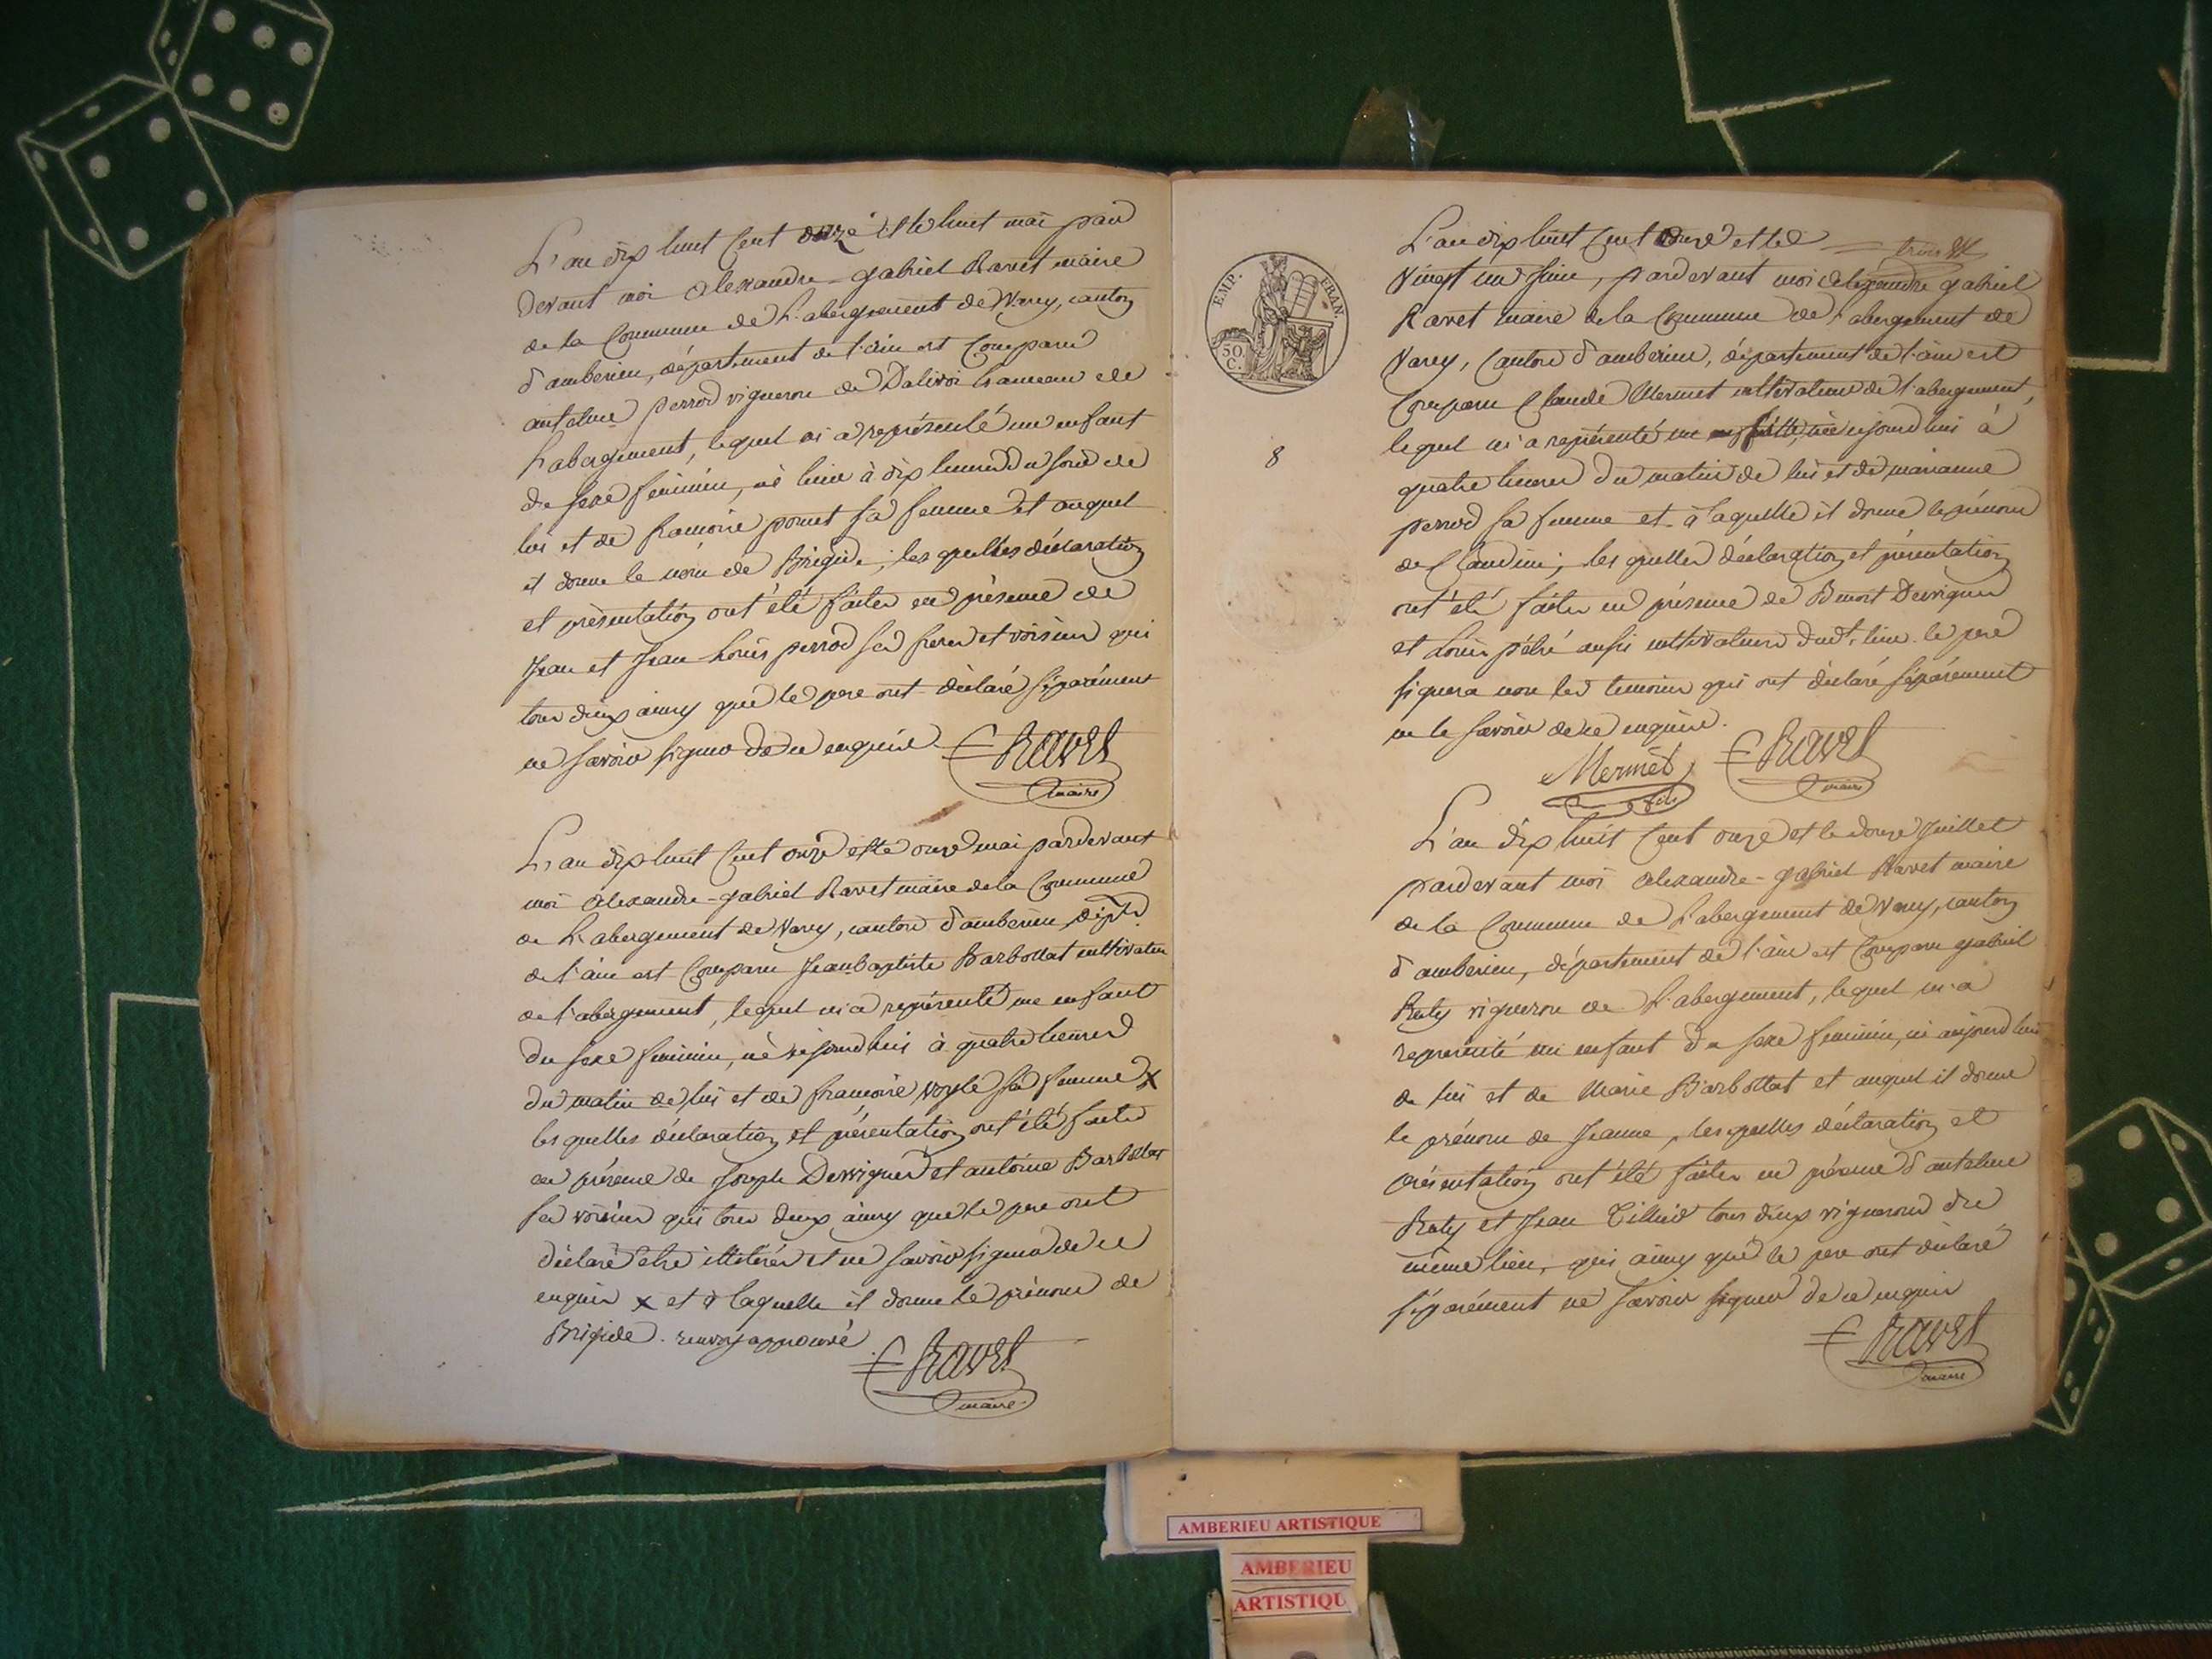 L'an dix huit cent onze et le huit mai par
devant moi Alexandre-gabriel Ravet maire
de la Commune de L'abergement de Varey, canton
d'amberieu, département de l'ain est Comparu
antelme perrod vigneron de Dalivoi hameau de
L'abergement, lequel m'a représenté un enfant
du sexe feminin, né hier à dix heures du soir de
lui et de francoise pomet sa femme et auquel
il donne le nom de Brigide; les quelles déclaration
et présentation ont été faites en présence de
Jean et Jean Louis perrod ses freres et voisins qui
tous deux ainsy que le pere ont déclaré séparément
ne savoir signer de ce enquis
Ravet
maire
L'an dix huit cent onze et le onze mai pardevant
moi Alexandre-gabriel Ravet maire de la Commune
de L'abergement de Varey, canton d'amberieu, dépt
de l'ain est Comparu Jean baptiste Barbollat cultivateur
de l'abergement, lequel m'a représenté un enfant
du sexe feminin, né aujourd'hui à quatre heures
du matin de lui et de francoise sa femme x
les quelles déclaration et présentation ont été faites
en présence de Joseph Dervigner et antoine Barbollat
ses voisins qui tous deux ainsy que le pere ont
déclaré etre illitérés et ne savoir signer de ce
enquis x et à laquelle il donne le prénom de
Brigide. renvoy approuvé
Ravet
maire
EMP. FRAN.
50 C.
8
L'an dix huit cent onze et le
vingt un Juin, pardevant moi alexandre gabriel
Ravet maire de la Commune de l'abergement de
Varey, Canton d'amberieu, département de l'ain est
Comparu Claude Mermet cultivateur de l'abergement,
lequel m'a représenté une fille, née aujourd'hui à
quatre heures du matin de lui et de marianne
perrod sa femme et à laquelle il donne le prénom
de Claudine; les quelles déclaration et présentation
ont été faites en présence de Benoit Dervigner
et Louis pétré aussi cultivateurs dudt. lieu. le pere
signera non les temoins qui ont déclaré séparément
ne le savoir de ce enquis.
Mermet fils
Ravet
maire
L'an dix huit Cent onze et le douze Juillet
pardevant moi Alexandre-gabriel Ravet maire
de la Commune de L'abergement de Varey, canton
d'amberieu, département de l'ain est Comparu gabriel
Ruty vigneron de L'abergement, lequel m'a
representé un enfant du sexe feminin, né aujourd'hui
de lui et de Marie Barbollat et auquel il donne
le prénom de Jeanne, les quelles déclaration et
présentation ont été faites en présence d'antelme
Ruty et Jean Tillier tous deux vignerons du
même lieu, qui ainsy que le pere ont déclaré
séparément ne savoir signer de ce enquis
Ravet
maire
AMBERIEU ARTISTIQUE
AMBERIEU
ARTISTIQU